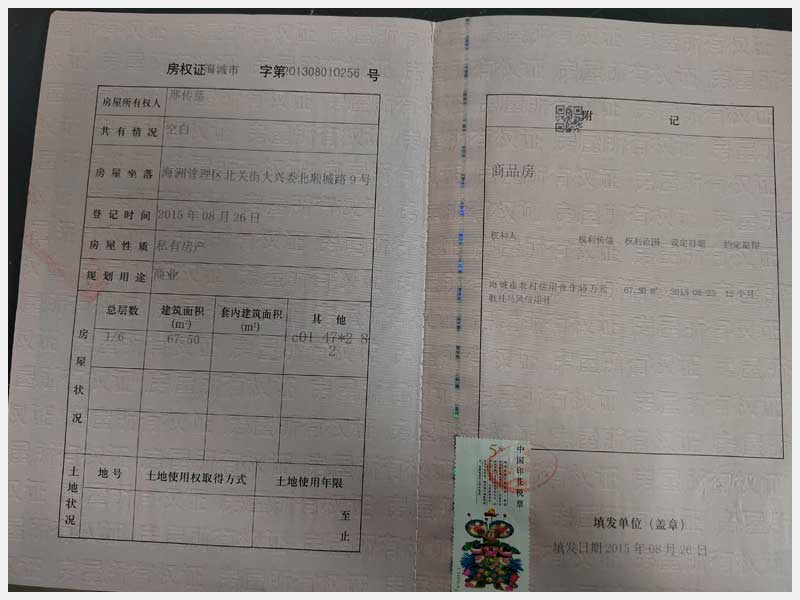 房权证海城市 字第201308010256 号
房屋所有权人 邢传茹
共有情况 空白
房屋坐落 海洲管理区北关街大兴委北顺城路9号
登记时间 2015年08月26日
房屋性质 私有房产
规划用途 商业
房屋状况
总层数 建筑面积(m²) 套内建筑面积(m²) 其他
1/6 67.50 c01 47*2 8
2
土地状况
地号 土地使用权取得方式 土地使用年限
至
止
附 记
商品房
权利人 权利价值 权利范围 设定日期 约定期限
海城市农村信用合作 35万元 67.50㎡ 2015-08-25 12个月
联社马风信用社
5
中国印花税票
填发单位（盖章）
填发日期2015年08月26日